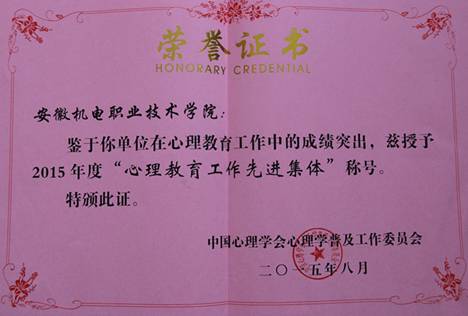 荣誉证书
HONORARY CREDENTIAL
安徽机电职业技术学院：
鉴于你单位在心理教育工作中的成绩突出，兹授予
2015年度“心理教育工作先进集体”称号。
特颁此证。
中国心理学会心理学普及工作委员会
二〇一五年八月